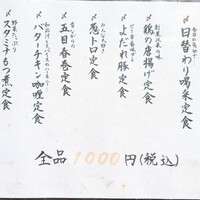 〆日替わり喝采定食
創業以来の味
〆鶏の唐揚げ定食
〆よだれ豚定食
みんな大好き
〆葱トロ定食
昔ながらの
〆五目春巻定食
〆バターチキン咖喱定食
野菜たっぷり
〆スタミナもつ煮定食
全品1000円(税込)